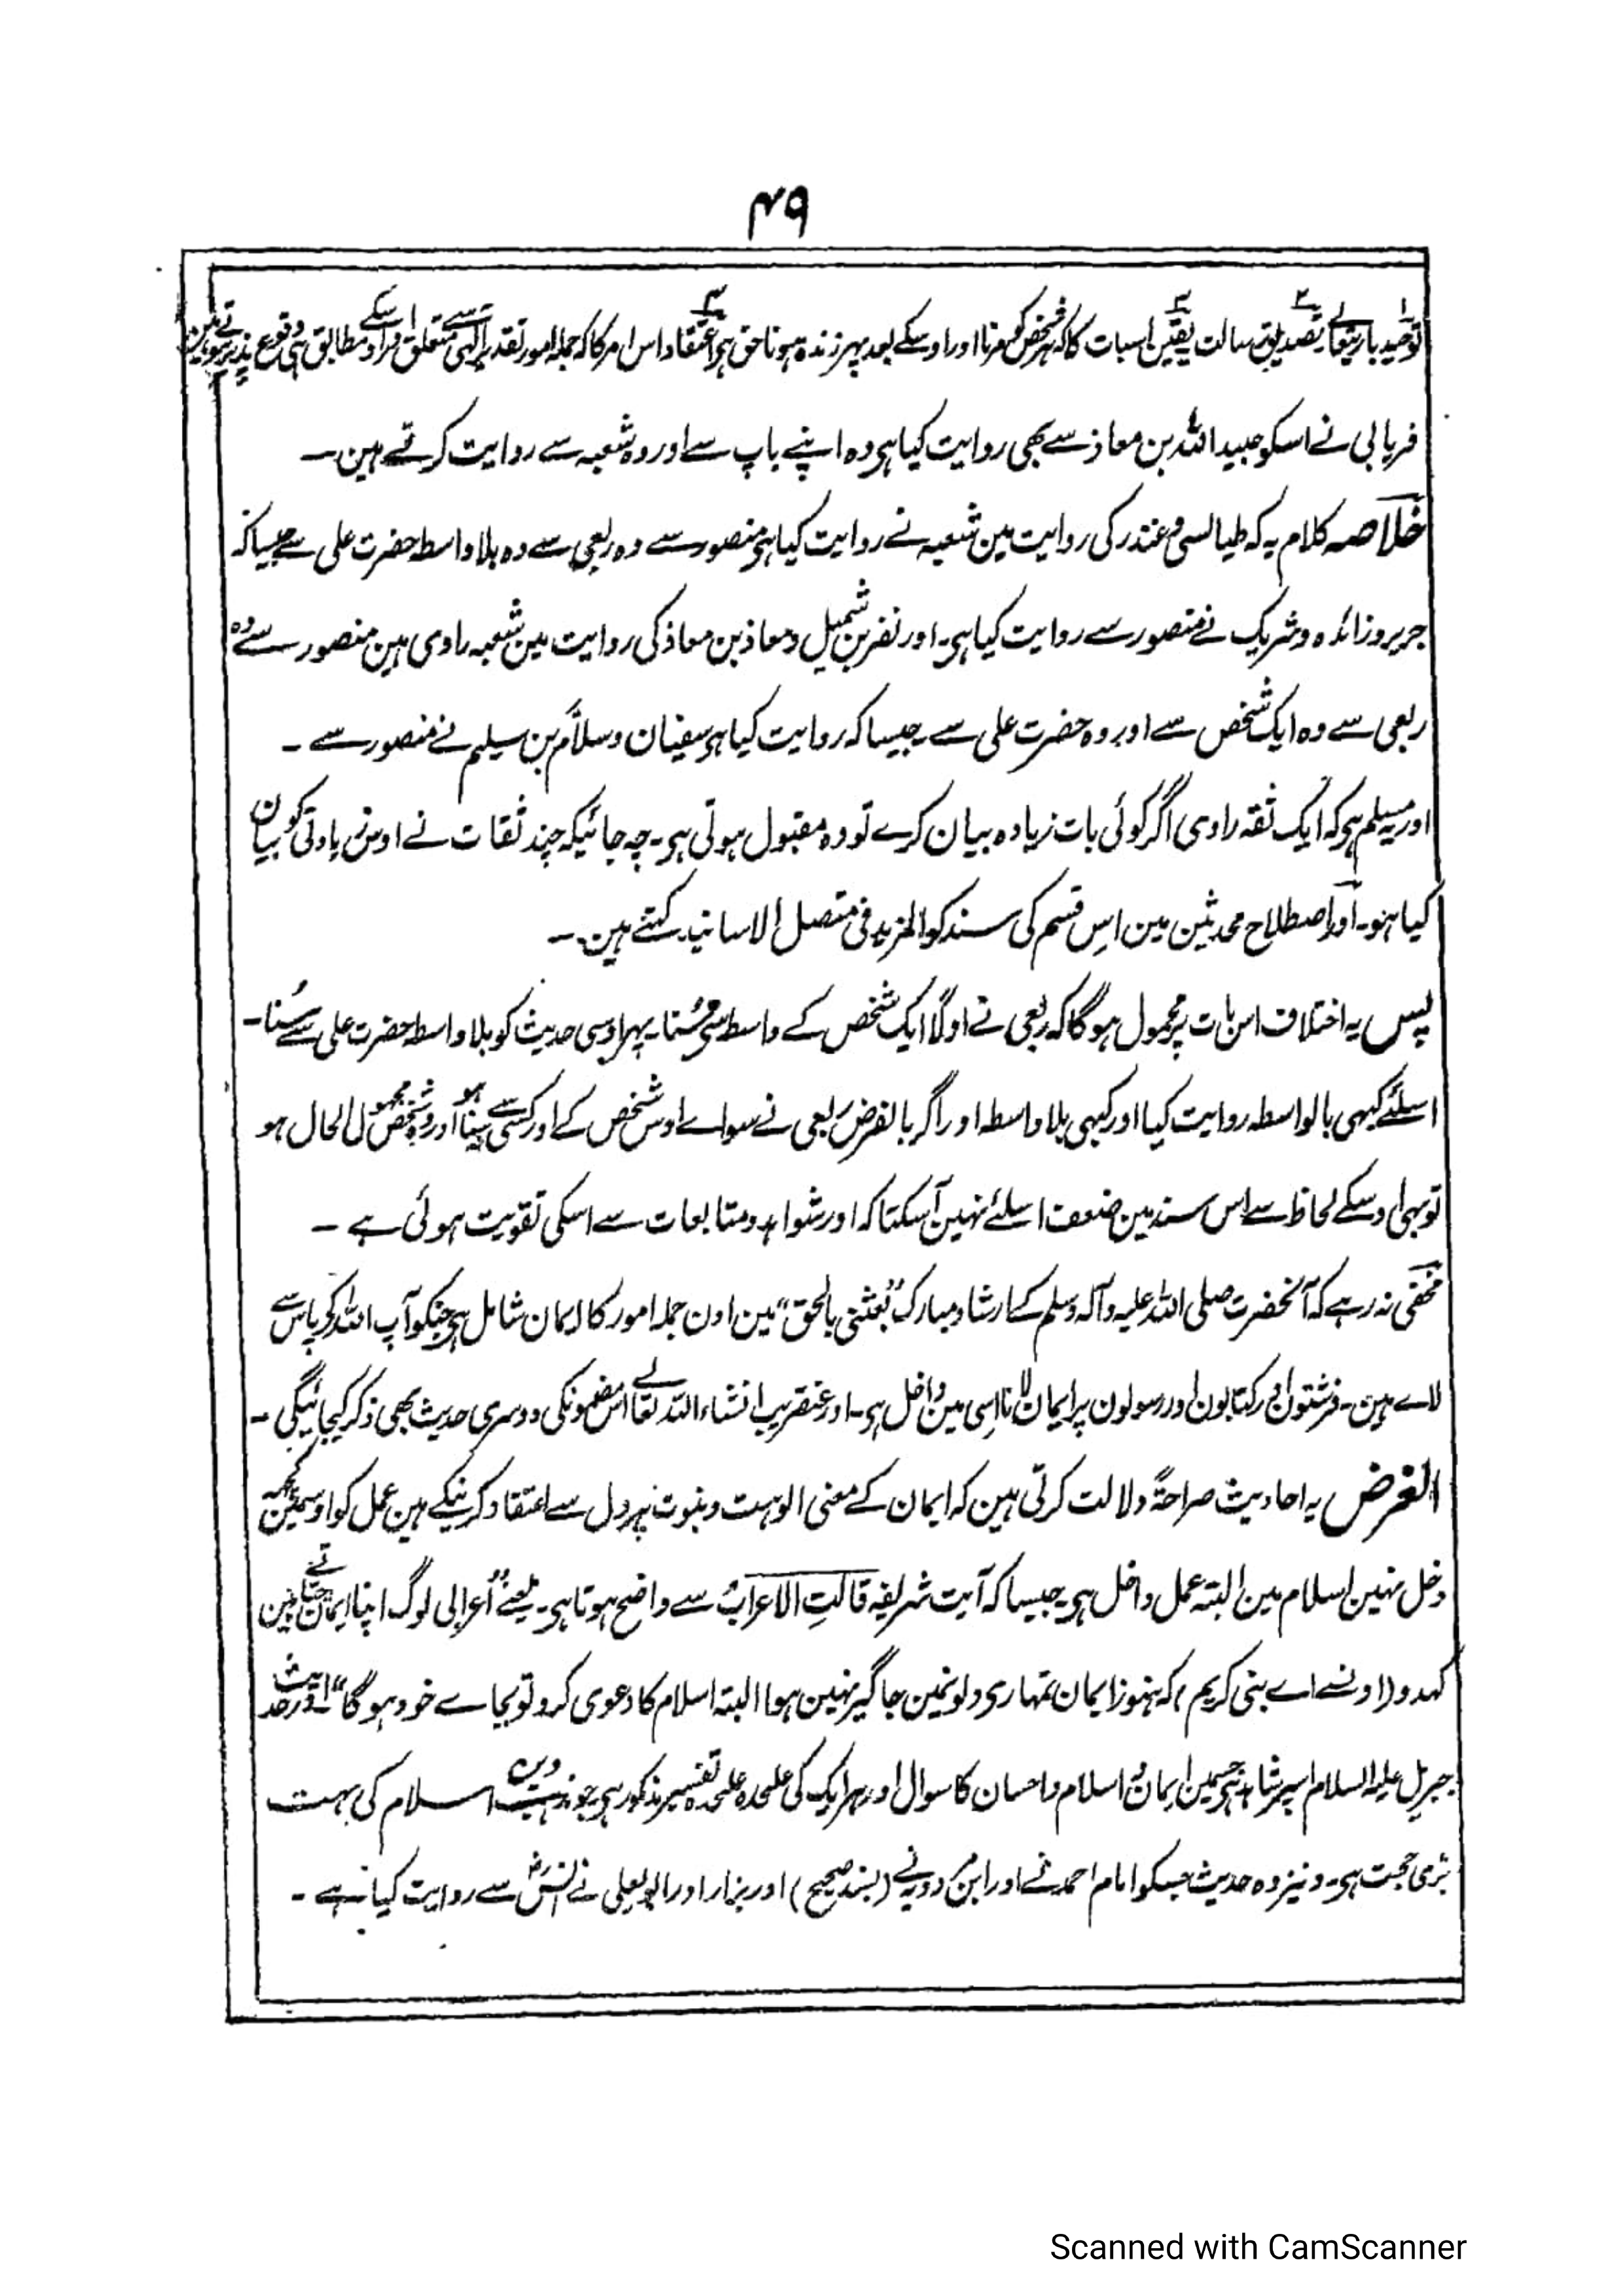 ۴۹
توحید باریتعالے تصدیق رسالت یقین اسبات کا کہ ہر شخص کو مرنا اور اوسکے بعد پہر زندہ ہونا حق ہی اعتقاد اس امر کا کہ جملہ امور تقدیر الٰہی سے متعلق اور اوسکے مطابق ہی وقوع پذیر ہوتے ہین
فریابی نے اسکو عبید اللہ بن معاذ سے بھی روایت کیا ہی وہ اپنے باپ سے اور وہ شعبہ سے روایت کرتے ہین۔
خلاصہ کلام یہ کہ طیالسی و غندر کی روایت مین شعبہ نے روایت کیا ہی منصور سے وہ ربعی سے وہ بلا واسطہ حضرت علی سے جیسا کہ
جریر و زائدہ و شریک نے منصور سے روایت کیا ہی۔ اور نضر بن شمیل و معاذ بن معاذ کی روایت مین شعبہ راوی ہین منصور سے وہ
ربعی سے وہ ایک شخص سے اور وہ حضرت علی سے جیسا کہ روایت کیا ہی سفیان و سلام بن سلیم نے منصور سے ۔
اور یہ مسلم ہی کہ ایک ثقہ راوی اگر کوئی بات زیادہ بیان کرے تو وہ مقبول ہوتی ہی۔ چہ جائیکہ چند ثقات نے اوس زیادتی کو بیان
کیا ہو۔ اور اصطلاح محدثین مین اس قسم کی سند کو المزید فی متصل الاسانید کہتے ہین۔
پس یہ اختلاف اس بات پر محمول ہوگا کہ ربعی نے اولًا ایک شخص کے واسطہ سے سُنا۔ پہر اوسی حدیث کو بلا واسطہ حضرت علی سے سُنا۔
اسلئے کبہی بالواسطہ روایت کیا اور کبہی بلا واسطہ اور اگر بالفرض ربعی نے سواے اوس شخص کے اور کسی سے نہ سنا ہو اور وہ شخص مجہول الحال ہو
توبہی اوسکے لحاظ سے اس سند مین ضعف اسلئے نہین آسکتا کہ اور شواہد و متابعات سے اسکی تقویت ہوئی ہے ۔
مخفی نہ رہے کہ آنحضرت صلی اللہ علیہ و آلہ وسلم کے ارشاد مبارک "بعثنی بالحق" مین اون جملہ امور کا ایمان شامل ہی جنکو آپ اللہ کے پاس سے
لاے ہین۔ فرشتون اور کتابون اور رسولون پر ایمان لانا اسی مین داخل ہی۔ اور عنقریب انشاء اللہ تعالے اس مضمونکی دوسری حدیث بھی ذکر کیجائیگی ۔
الغرض یہ احادیث صراحۃً دلالت کرتی ہین کہ ایمان کے معنی الوہیت و نبوت پر دل سے اعتقاد کرنیکے ہین عمل کو اوسمین کچھ
دخل نہین اسلام مین البتہ عمل داخل ہی جیسا کہ آیت شریفہ قالتِ الاعرابُ سے واضح ہوتا ہی۔ یعنے "اعرابی لوگ اپنا ایمان جتاتے ہین
کہدو (اونسے اے نبی کریم) کہ ہنوز ایمان تمہاری دلونمین جاگیر نہین ہوا البتہ اسلام کا دعوی کرو تو بجاے خود ہوگا" اور حدیث
جبریل علیہ السلام اسپر شاہد ہی جسمین ایمان و اسلام و احسان کا سوال اور ہر ایک کی علحدہ علحدہ تفسیر مذکور ہی جو دین اسلام کی بہت
بڑی حجت ہی۔ و نیز وہ حدیث جسکو امام احمد نے اور ابن مردویہ نے (بسند صحیح) اور بزار اور ابو یعلی نے انسؓ سے روایت کیا ہے ۔
Scanned with CamScanner